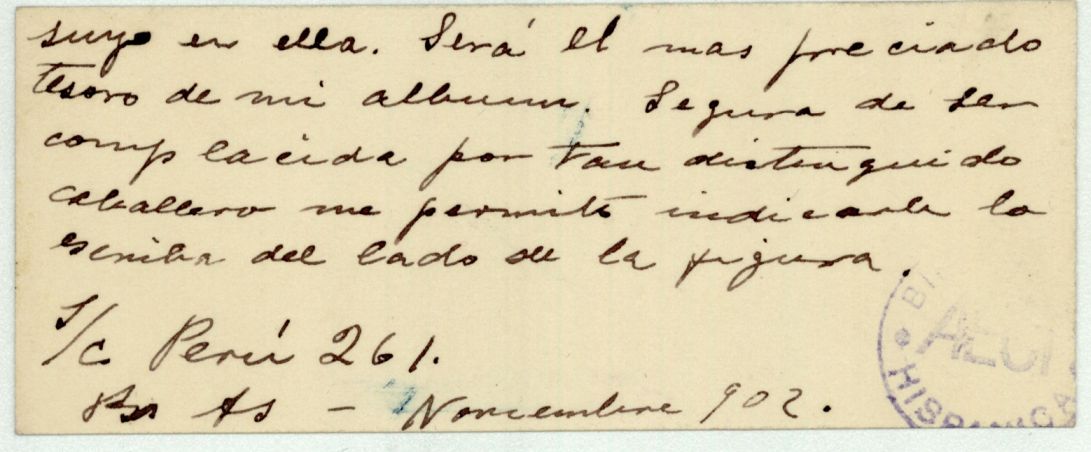 suyo en ella. Será el mas preciado
tesoro de mi album. Segura de ser
complacida por tan distinguido
caballero me permito indicarle lo
escriba del lado de la figura.
S/c Perú 261.
Bs As - Noviembre 902.
HISPANICA